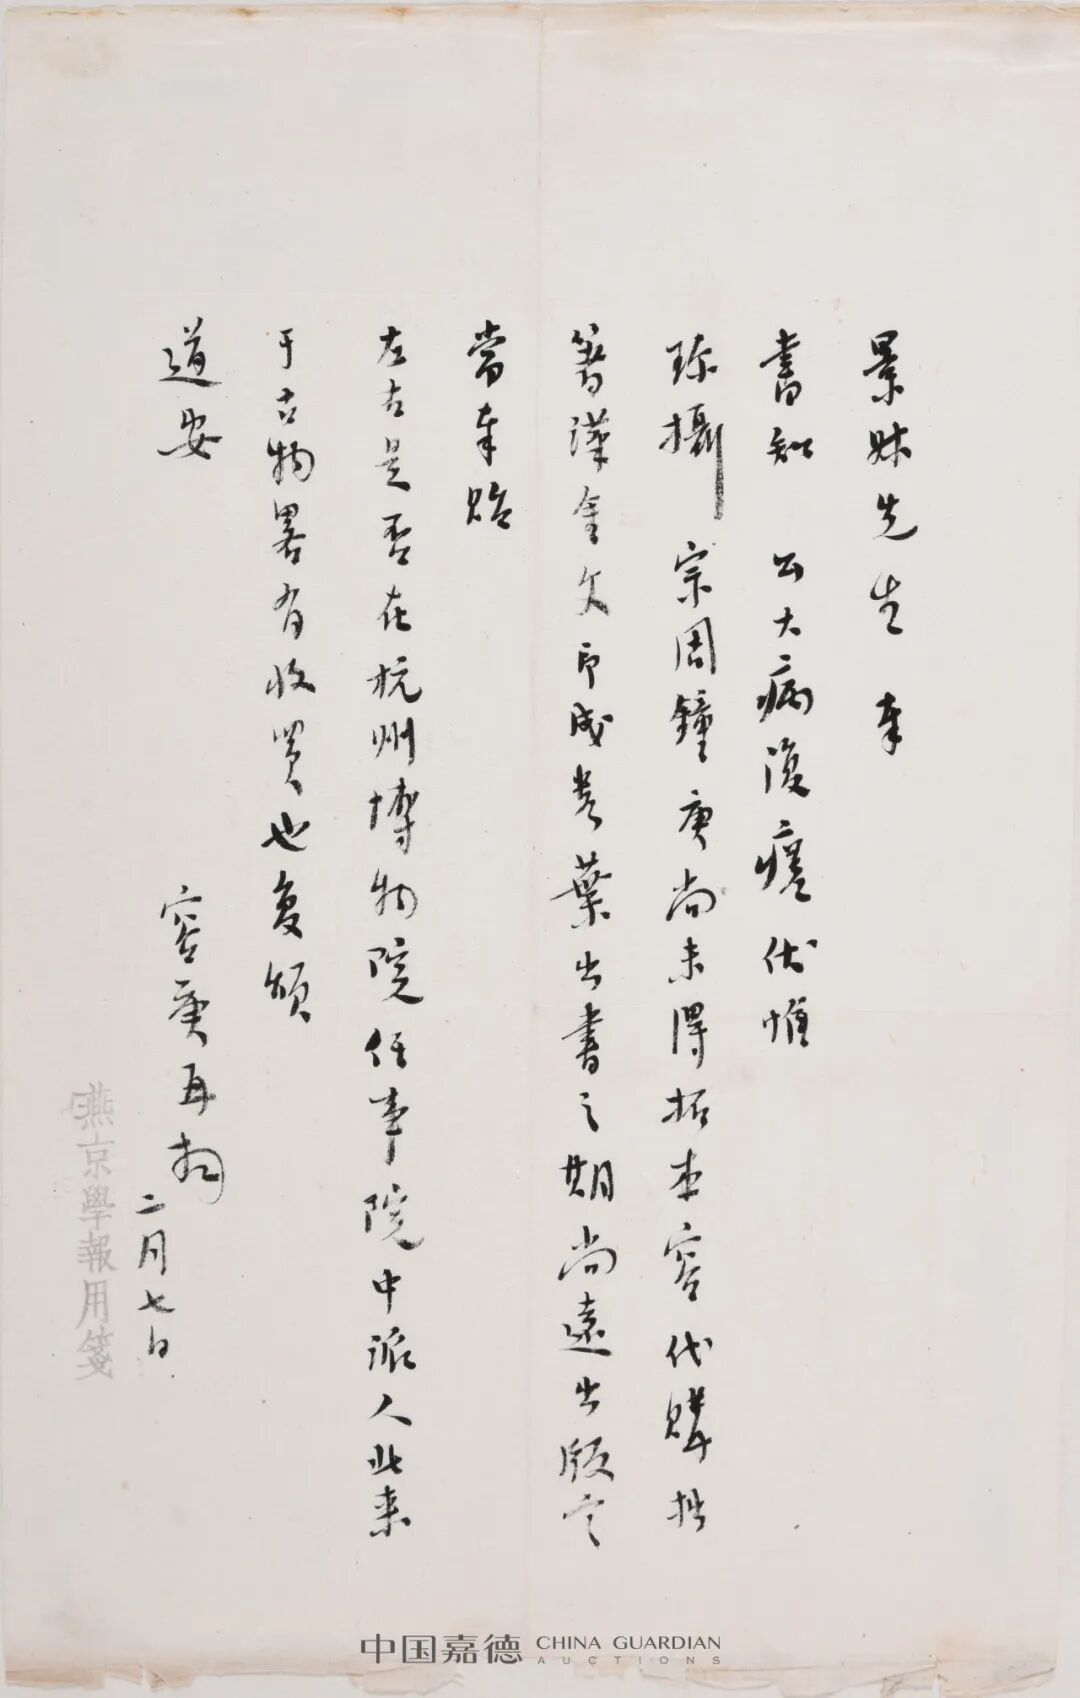 景叔先生 奉
書知 公大病復瘥伏惟
珍攝 宗周鐘庚尚未得拓本容代購拙
著漢金文印成葉出書之期尚遠出版定
當奉貽
左右是否在杭州博物院任事院中派人北來
于古物畧有收買也复頌
道安
容庚再拜
二月七日
燕京學報用箋
中国嘉德 CHINA GUARDIAN
AUCTIONS